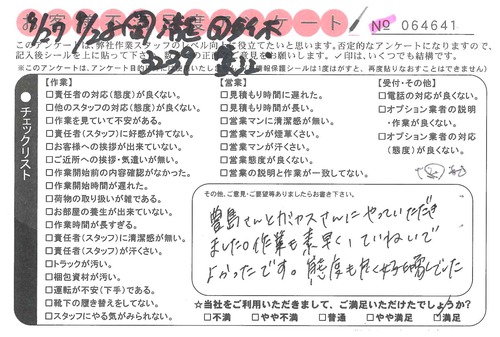 お客様不満足度アンケート № 064641
このアンケートは、弊社作業スタッフのレベル向上に役立てたいと思います。否定的なアンケートになりますので、
【作業】
□責任者の対応(態度)が良くない。
□他のスタッフの対応(態度)が良くない。
□作業を見ていて不安がある。
□責任者(スタッフ)に好感が持てない。
□お客様への挨拶が出来ていない。
□ご近所への挨拶・気遣いが無い。
□作業開始前の内容確認がなかった。
□作業開始時間が遅れた。
□荷物の取り扱いが雑である。
□お部屋の養生が出来ていない。
□作業時間が長すぎる。
□責任者(スタッフ)に清潔感が無い。
□責任者(スタッフ)が汗くさい。
□トラックが汚い。
□梱包資材が汚い。
□運転が不安(下手)である。
□靴下の履き替えをしてない。
□スタッフにやる気がみられない。
【営業】
□見積もり時間に遅れた。
□見積もり時間が長い。
□営業マンに清潔感が無い。
□営業マンが煙草くさい。
□営業マンが汗くさい。
□営業態度が良くない。
□営業の説明と作業が一致してない。
【受付・その他】
□電話の対応が良くない。
□オプション業者の説明
・作業が良くない。
□オプション業者の対応
(態度)が良くない。
● チェックリスト
その他、ご意見・ご要望等ありましたらお書き下さい。
豊島さんとガヤスさんにやっていただき
ました。作業も素早く、ていねいで
よかったです。態度も良く好感でした
☆当社をご利用いただきまして、ご満足いただけたでしょうか?
□不満 □やや不満 □普通 □やや満足 □満足